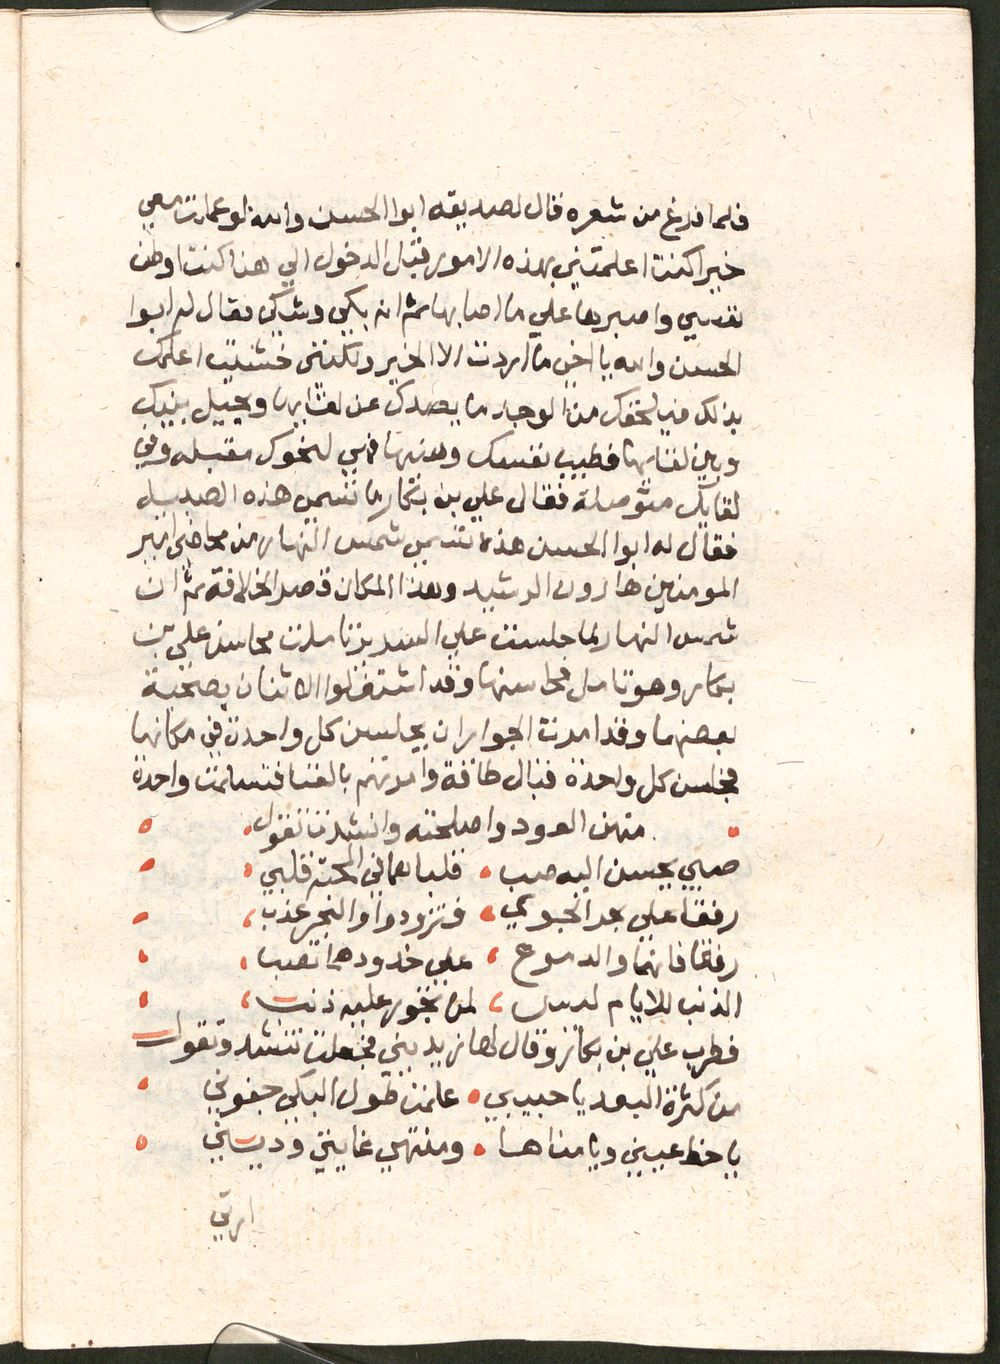 فلما فرغ من شعره قال لصديقه ابوا الحسن والله لو عملت معي
خيرا كنت اعلمتني بهذه الامور قبال الدخول الي هنا كنت اوطن
نفسي واصبرها علي ما اصابها ثم انه بكي وشكي فقال له ابوا
الحسن والله يا اخي ما اردت الا الخير ولكنني خشيت اعلمك
بذلك فيلحقك من الوجد ما يصدك عن لقايها ويحيل بينك
وبين لقايها فطيب نفسك وهنيها فهي لنحوك مقبله وفي
لقايك متوصلة فقال علي بن بكار ما تسمي هذه الصبيه
فقال له ابوا الحسن هذه تسمي شمس النهار من محاضي امير
المومنين هارون الرشيد وهذا المكان قصر الخلافة ثم ان
شمس النهار لما جلست علي السرير تاملت محاسن علي بن
بكار وهو تامل محاسنها وقد اشتغلوا الاثنان بصحبة
بعضهما وقد امرت الجوار ان يجلسن كل واحدة في مكانها
فجلسن كل واحدة قبال طاقة وامرتهم بالغنا فتسلمت واحدة
منهن العود واصلحته وانشدت تقول
صبي بحسن اليه صب فلباهما في المحبة قلبي
رفقا علي بحر الجوي فتزودوا والنحر عذب
رفقا فانهما والدموع علي خدودهما تصب
الذنب للايام ليس لمن تجور عليه ذنب
فطرب علي بن بكار وقال لها زيديني فجعلت تنشد وتقول
من كثرة البعد يا حبيبي علمت طول البكي جفوني
يا حظ عيني ويا مناها ومنتهي غايتي وديني
ارثي